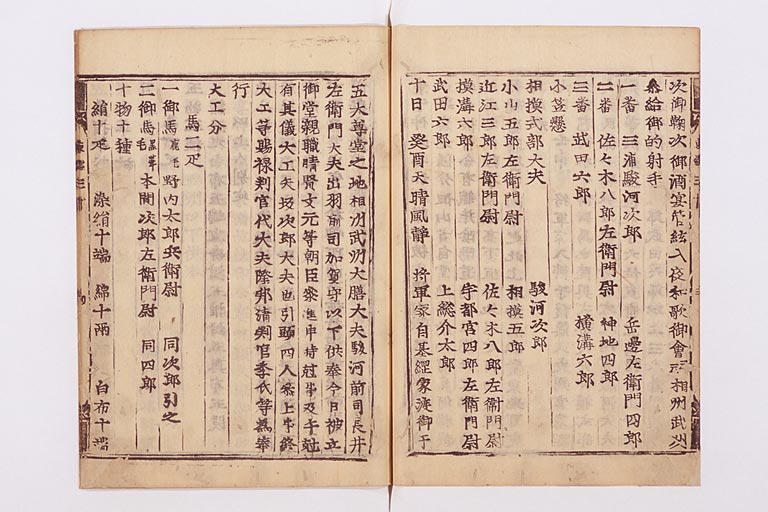 次御鞠次御酒宴管絃入夜和歌御會云々相州武州
参給御的射手
一番 三浦駿河次郎 岳邊左衛門四郎
二番 佐々木八郎左衛門尉 神地四郎
三番 武田六郎 横溝六郎
小笠懸
相摸式部大夫 駿河次郎
小山五郎左衛門尉 相摸五郎
近江三郎左衛門尉 佐々木八郎左衛門尉
横溝六郎 宇都宮四郎左衛門尉
武田六郎 上総介太郎
十日 癸酉天晴風静 將軍家自甚繩家渡御于
五大尊堂之地相州武州大膳大夫駿河前司長井
左衛門大夫出羽前司加賀守以下供奉今日被立
御堂親職晴賢文元等朝臣参進申時尅事及午尅
有其儀大工矢坂次郎大夫也引頭四人参上事終
大工等賜禄判官代大夫隆邦清判官季氏等為奉
行
大工分
馬二疋
一御馬鹿毛 野内太郎兵衛尉 同次郎引之
二御馬黒葦毛 本間次郎左衛門尉 同四郎
十物十種
絹十疋 染絹十端 綿十兩 白布十端